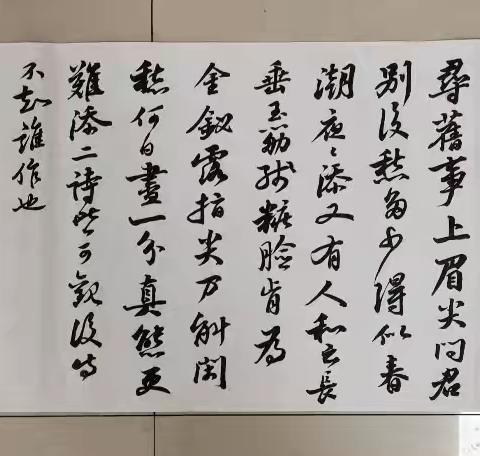 尋舊事上眉尖問君
別後愁多少得似春
潮夜〻添又有人和云長
垂玉筋殘粧臉肯為
金釵露指尖万斛閑
愁何日盡一分真態更
難添二詩皆可觀後詩
不知誰作也